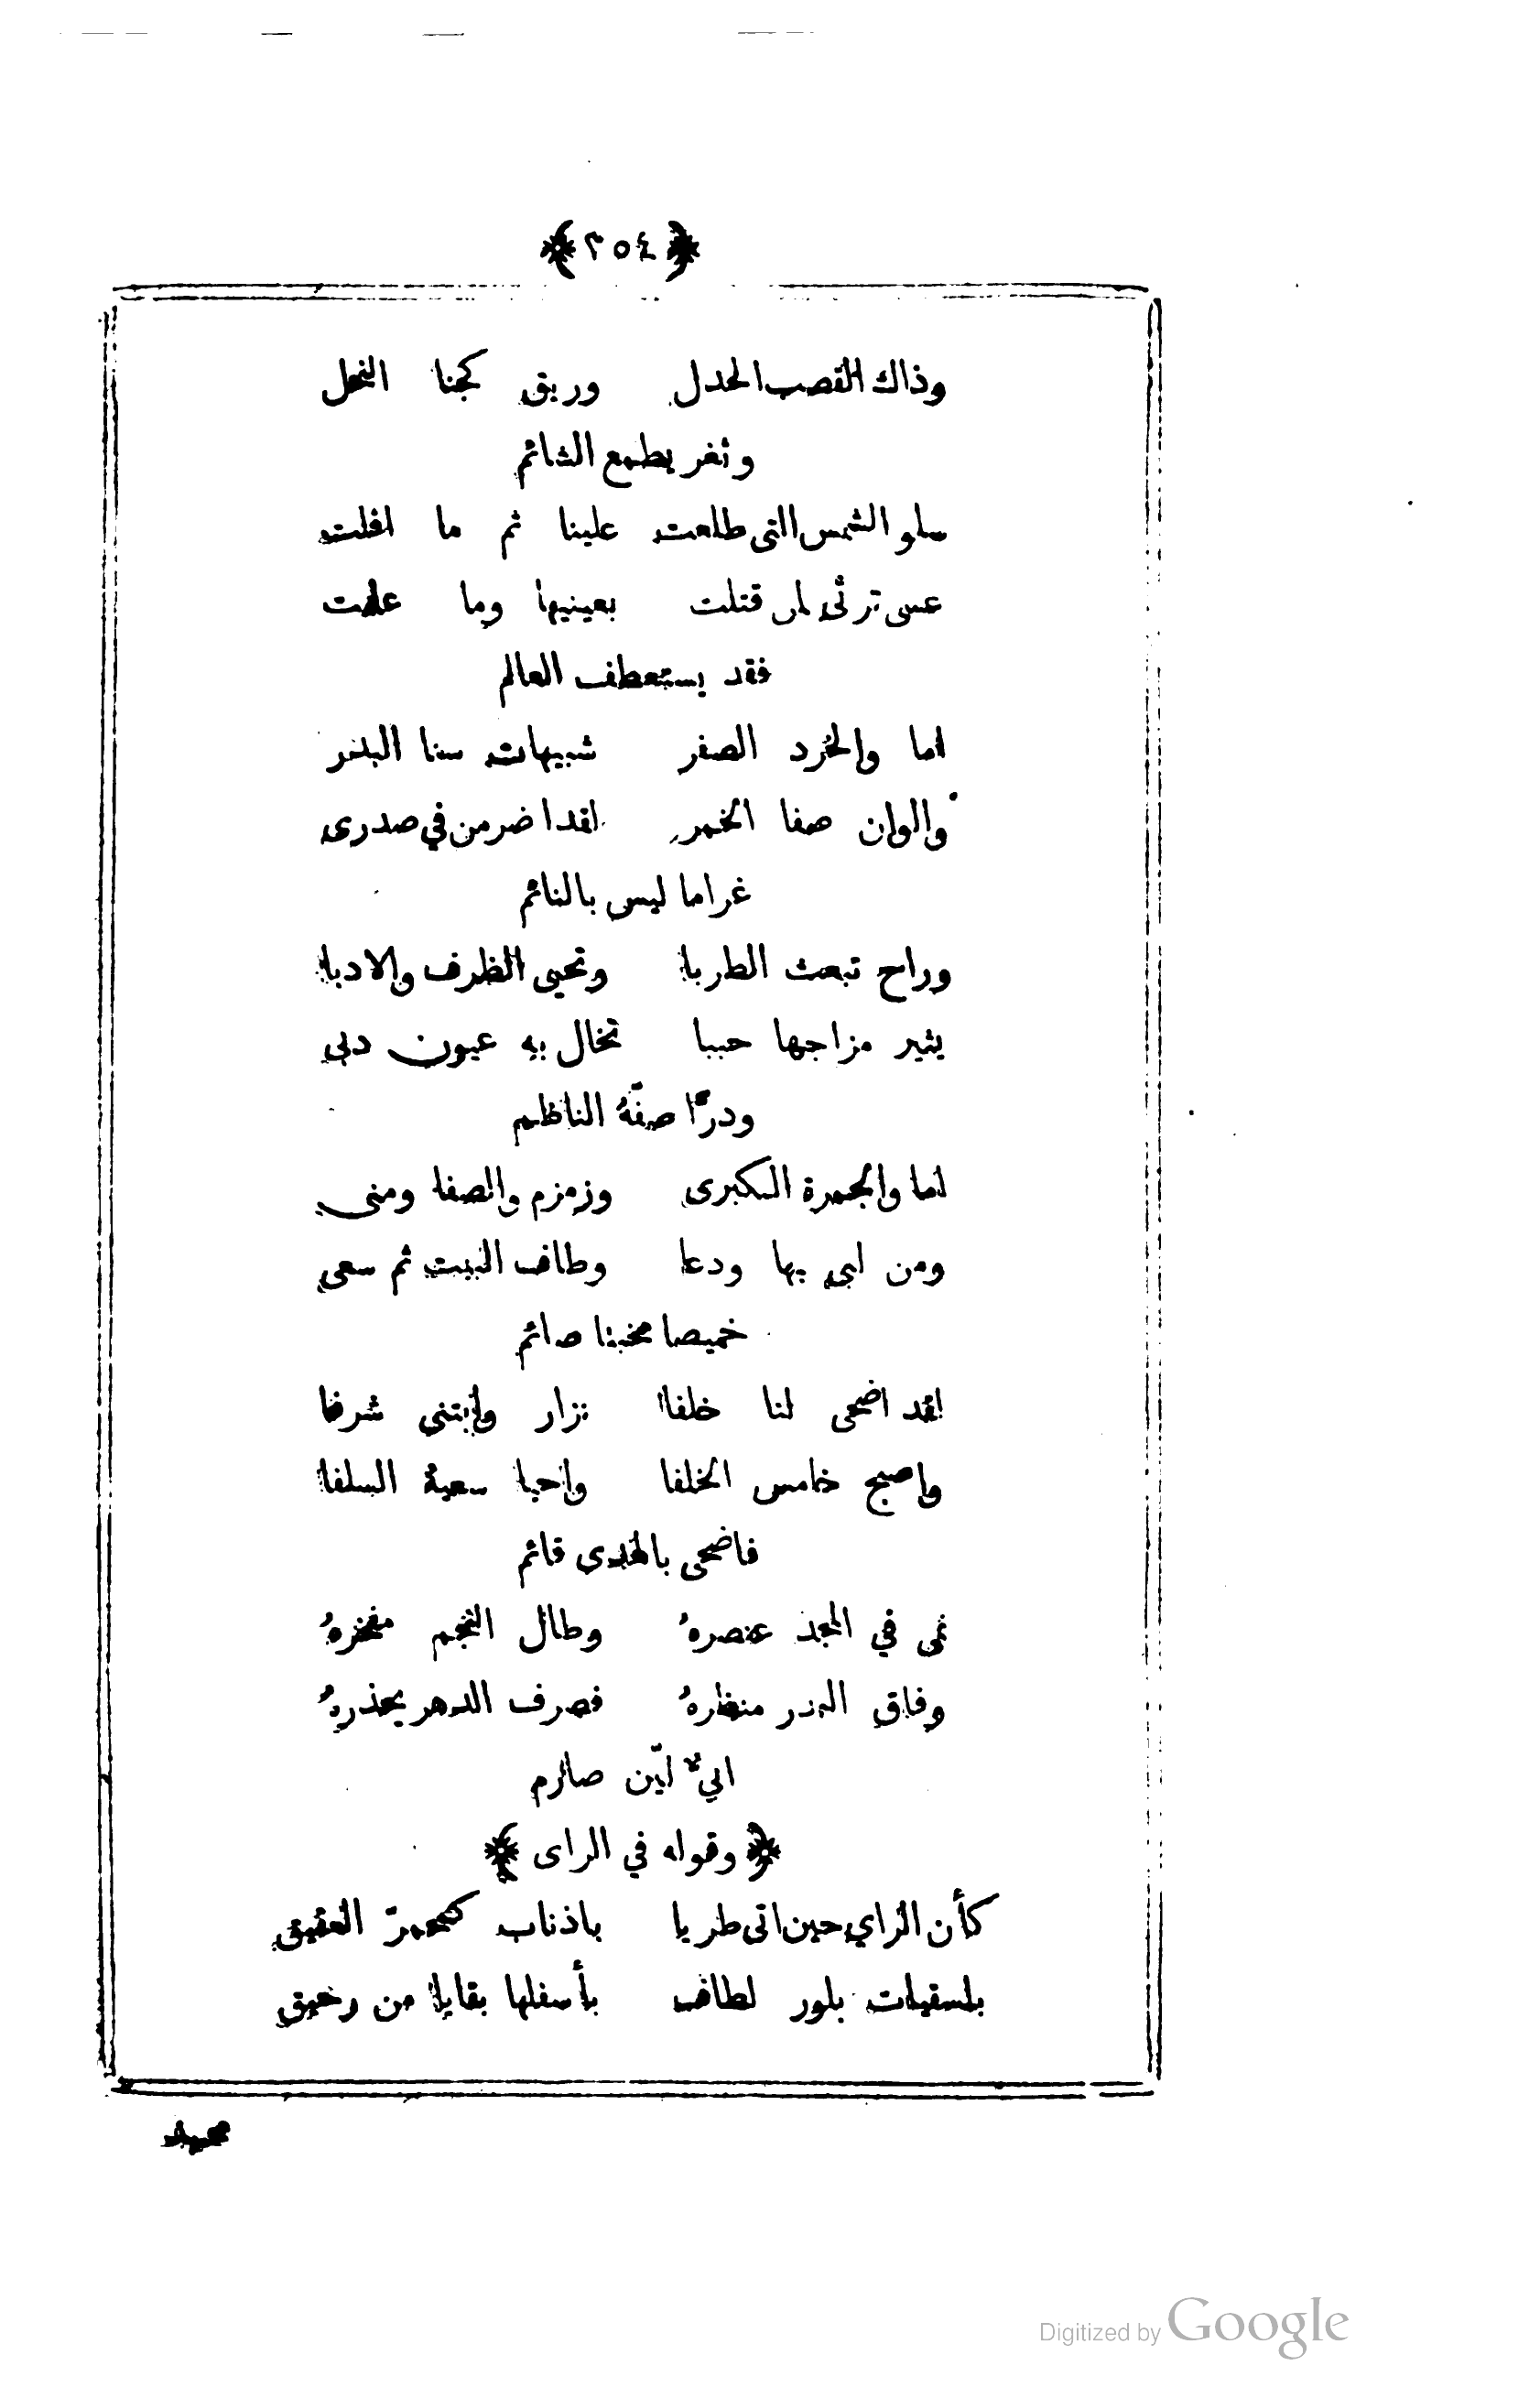 ﴿٢٥٤﴾
وذاك القصب الخدل وريق كجنا النحل
وثغر يطمع الشائم
سلو الشمس التى طلعت علينا ثم ما افلت
عسى ترثى لمن قتلت بعينيها وما علمت
فقد يستعطف العالم
اما والخرد الصفر شبيهات سنا البدر
والوان صفا الخمر لقد اضر من في صدرى
غراما ليس بالنائم
وراح تبعث الطربا وتحيى الظرف والادبا
يثير مزاجها حببا تخال به عيون دبى
ودرًّا صفّهُ الناظم
اما والجمرة الكبرى وزمزم والصفا ومنى
ومن لبى بها ودعا وطاف البيت ثم سعى
خميصا مخبتا صائم
لقد اضحى لنا خلفا نزار وابتنى شرفا
واصبح خامس الخلفا واحيا سعية السلفا
فاضحى بالهدى قائم
نمى في المجد عنصرهُ وطال النجم مفخرهُ
وفاق البدر منظرهُ فصرف الدهر يحذرهُ
ابيٌّ ليّن صارم
﴿ وقوله في الراى ﴾
كأن الراي حين اتى طريا باذناب كمحمرّ العقيق
بلسقيات بلور لطاف بأسفلها بقايا من رحيق
Digitized by Google